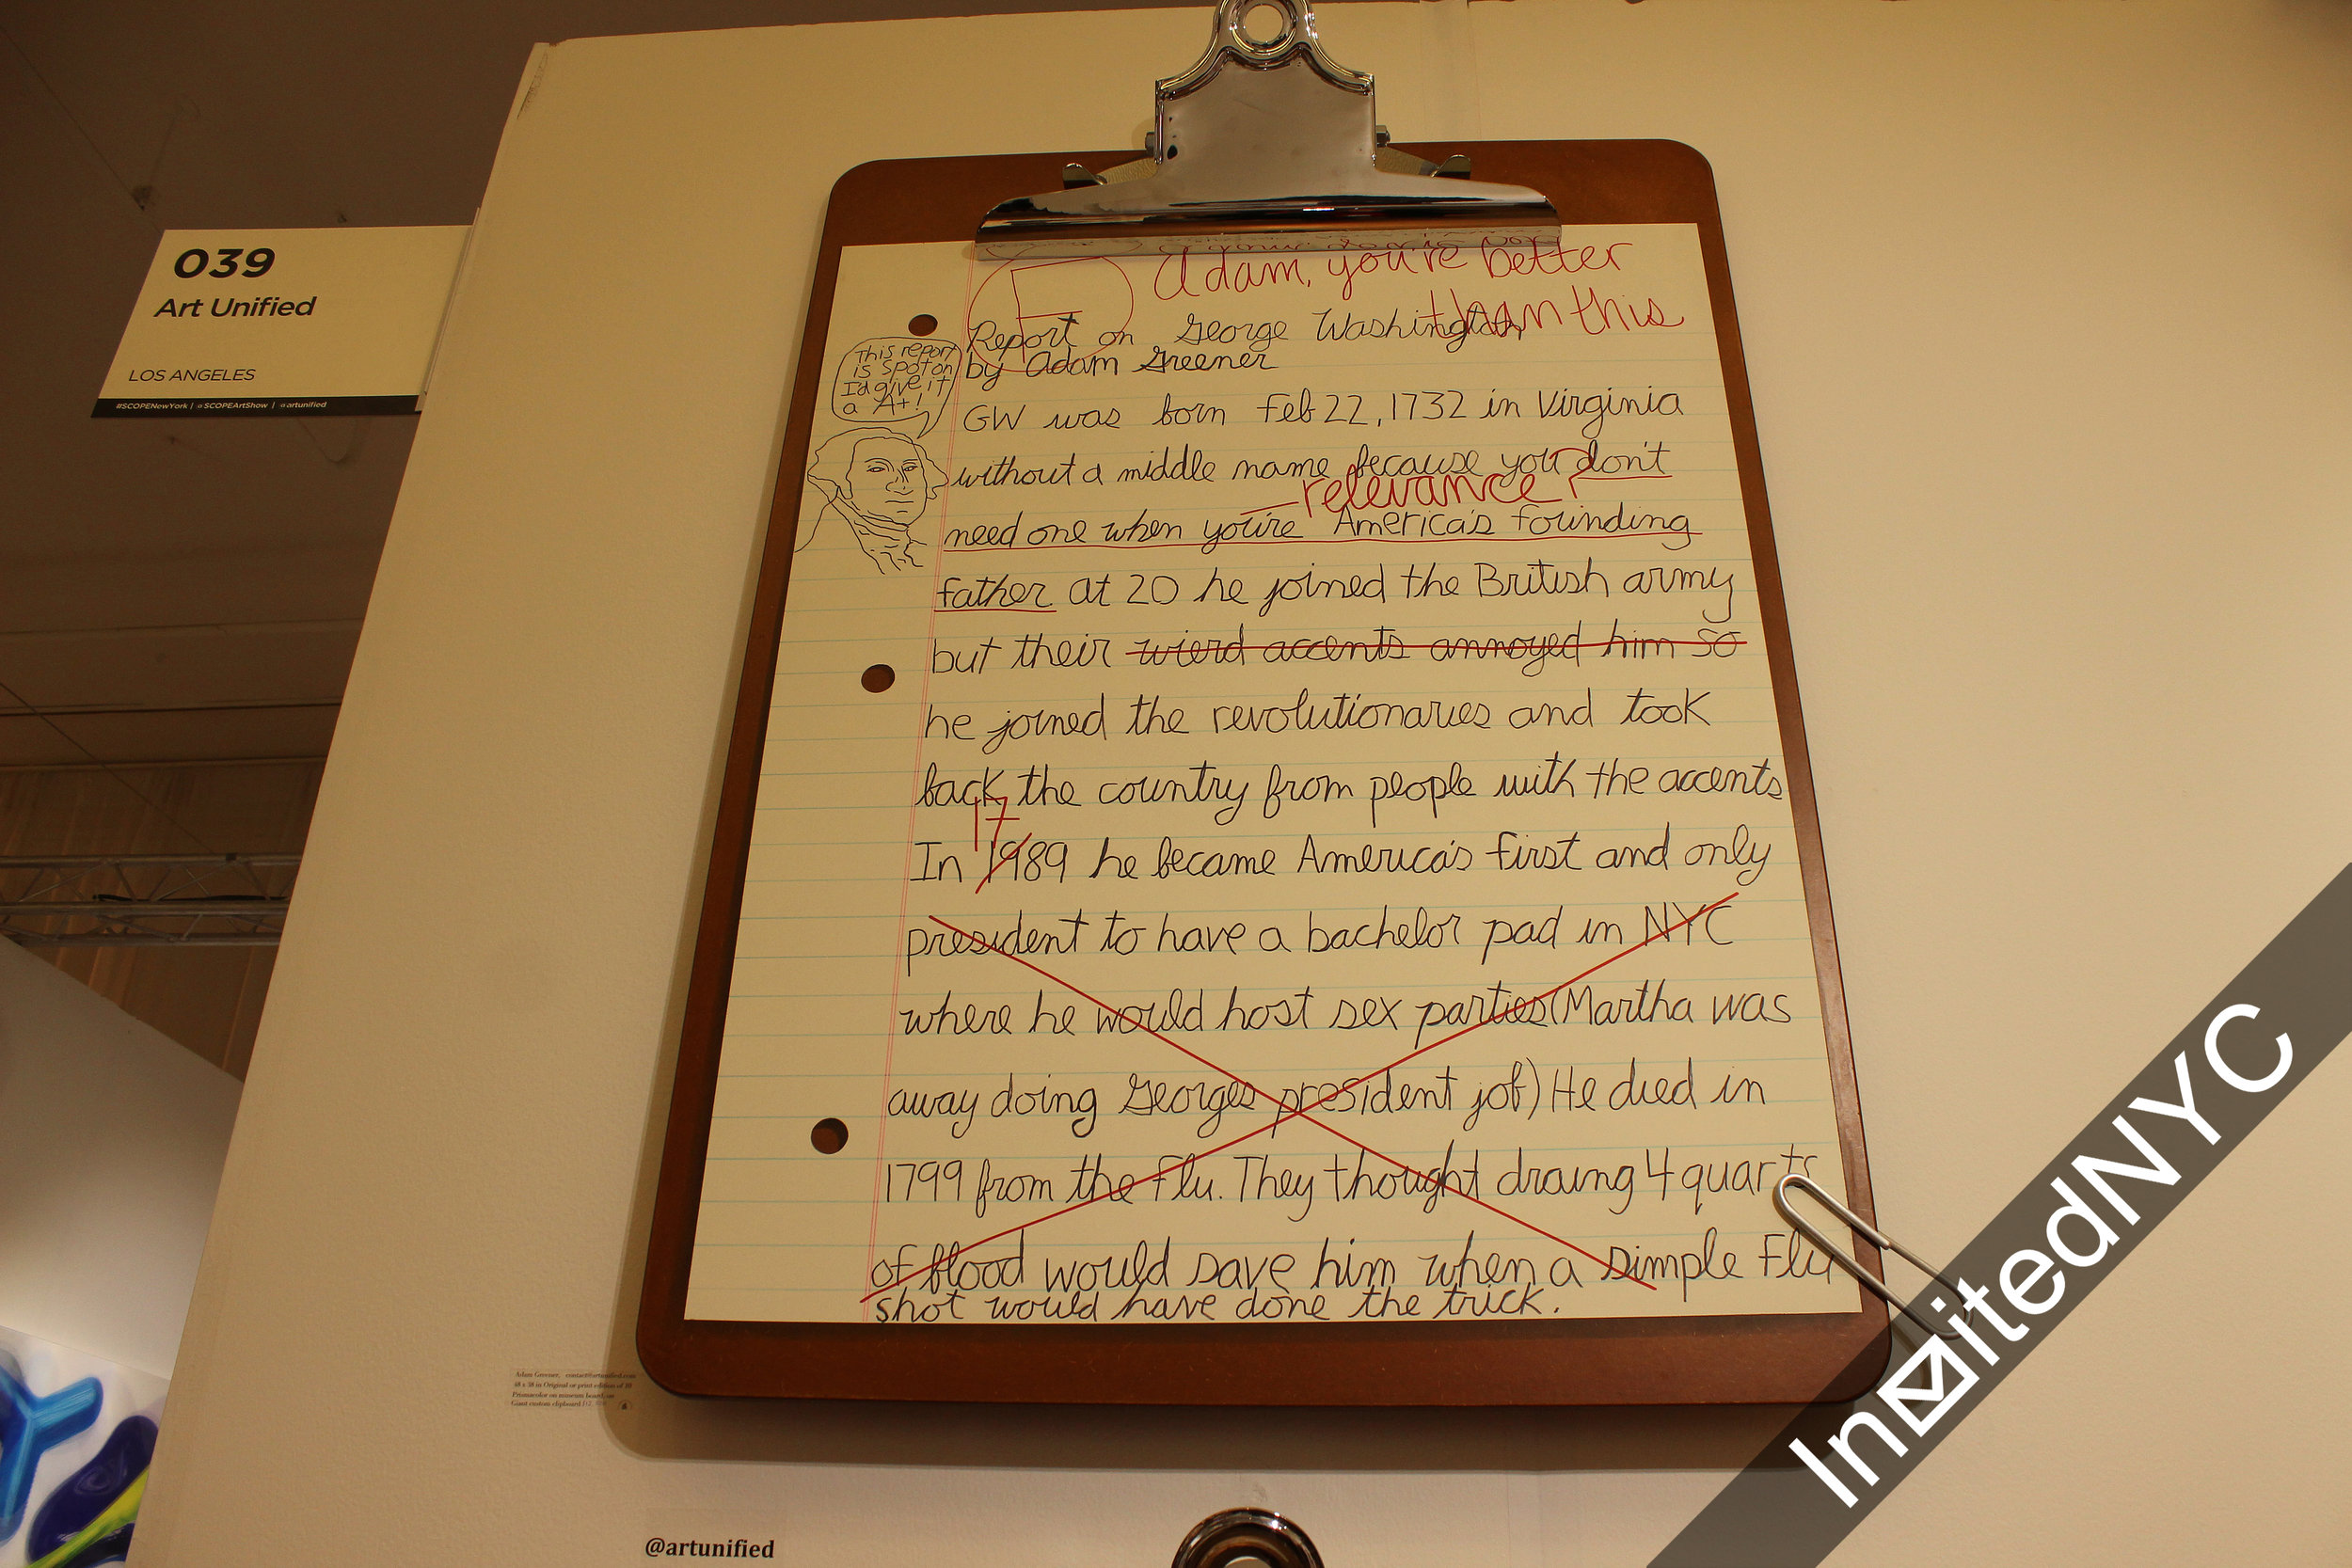 039
Art Unified
LOS ANGELES
#SCOPENewYork | @SCOPEArtShow | @artunified
F
Adam, you're better
than this
Report on George Washington
by Adam Greener
This report
is spot on
I'd give it
a A+!
GW was born Feb 22, 1732 in Virginia
without a middle name because you don't
relevance?
need one when you're America's founding
father at 20 he joined the British army
but their wierd accents annoyed him so
he joined the revolutionaries and took
back the country from people with the accents
17
In 1989 he became America's first and only
president to have a bachelor pad in NYC
where he would host sex parties (Martha was
away doing Georges president job) He died in
1799 from the Flu. They thought draing 4 quarts
of blood would save him when a simple Flu
shot would have done the trick.
Adam Greener, contact@artunified.com
48 x 38 in Original or print edition of
Prismacolor on museum board, on
Giant custom clipboard
@artunified
InvitedNYC